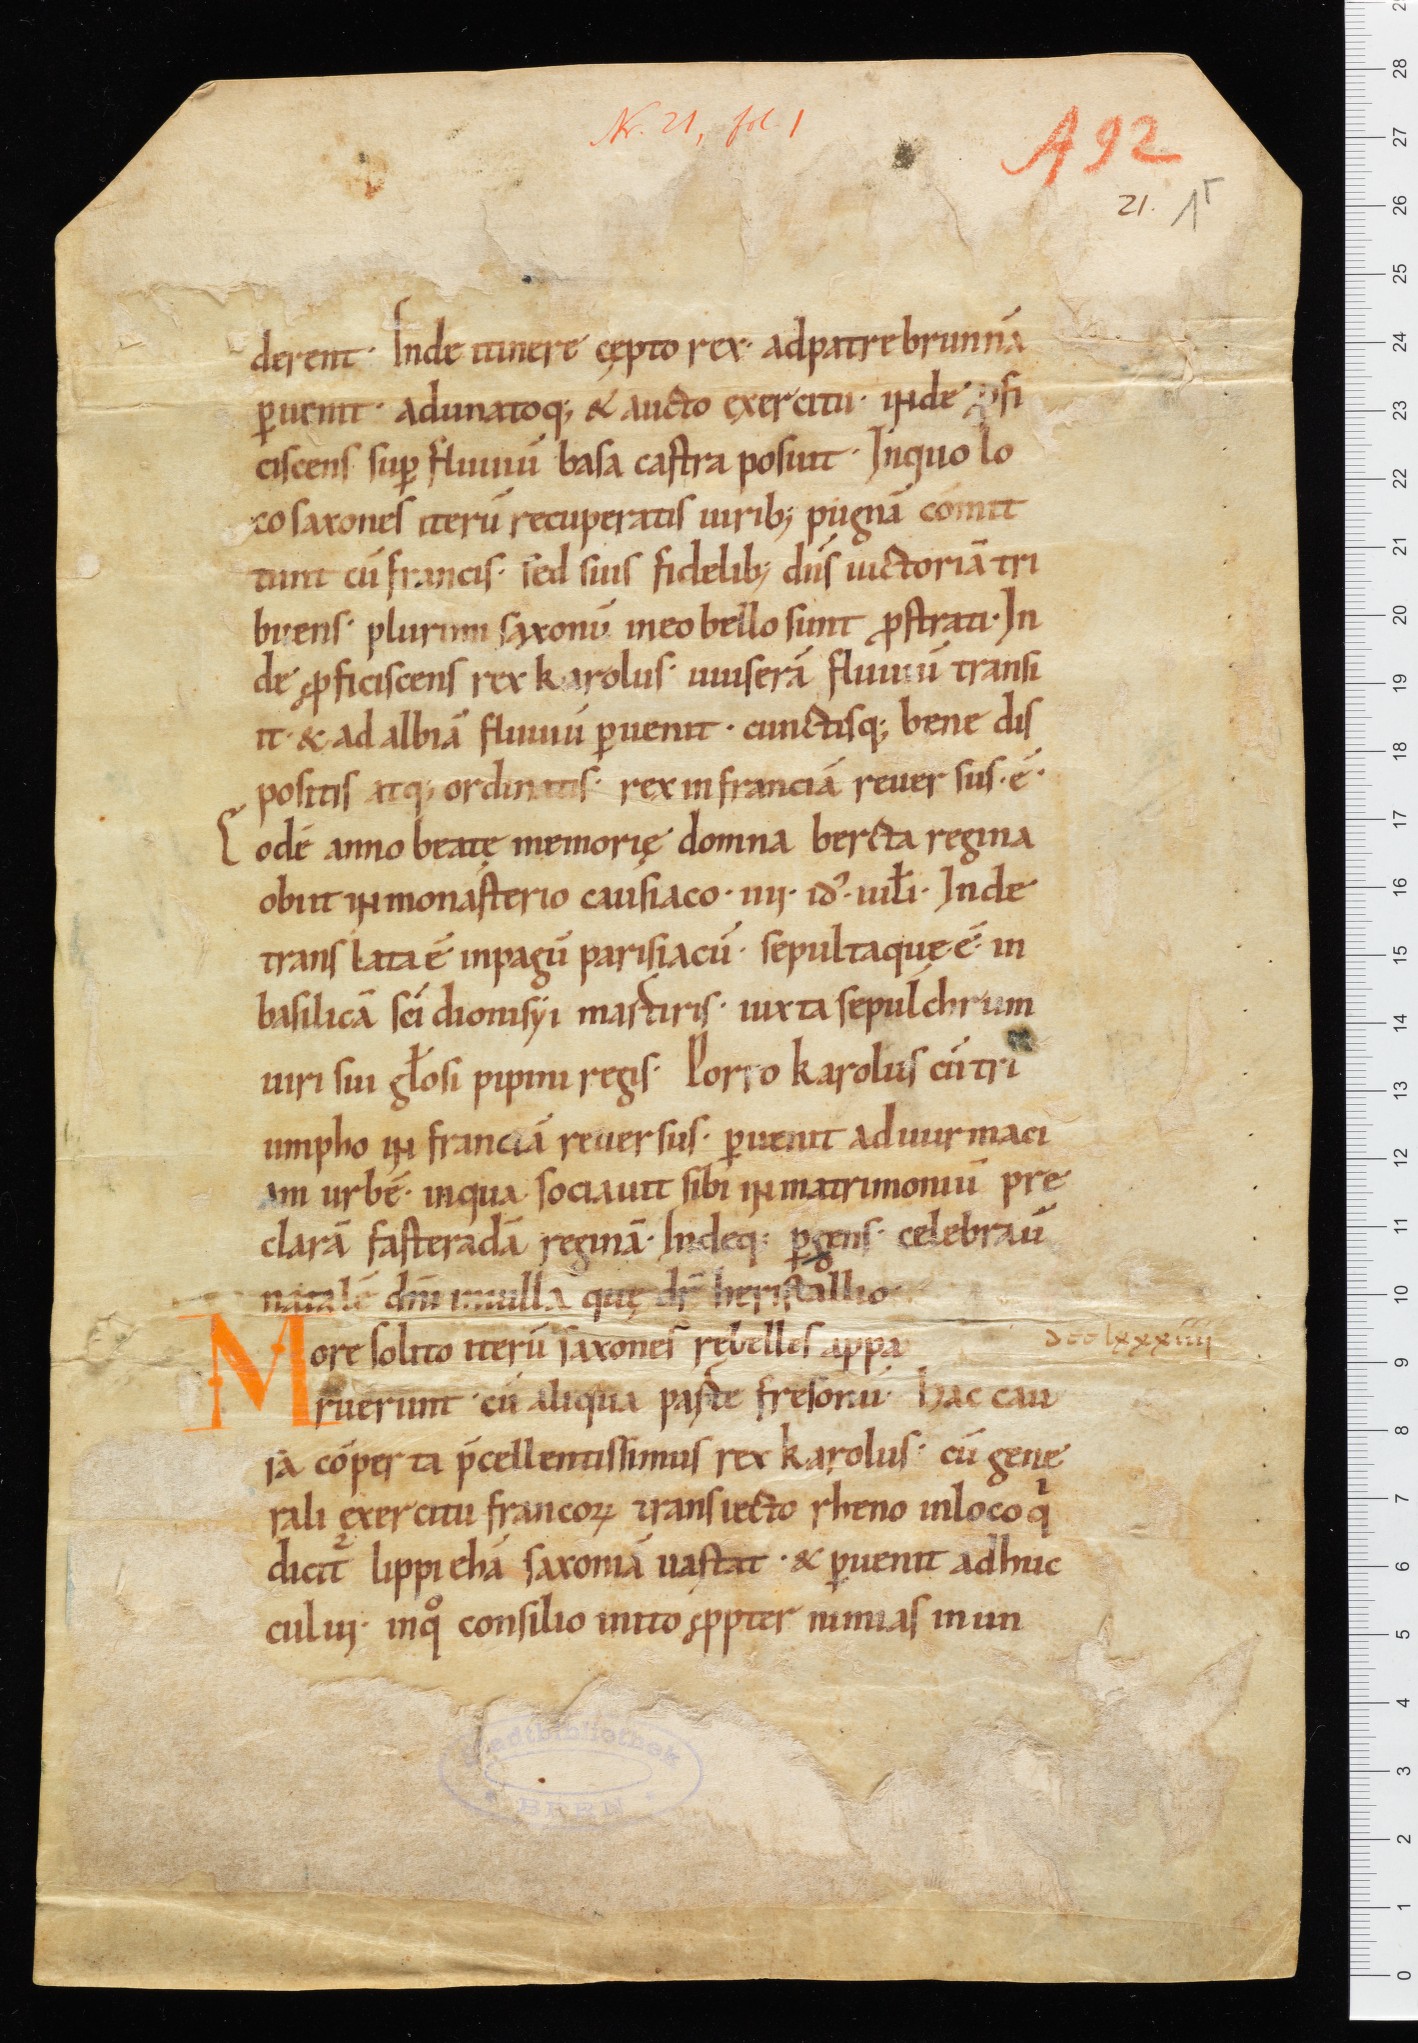 Nr. 21, fol. 1
A 92
21. 1r
derent· Inde itinere cępto rex· adpatrebrunnā
ꝑuenit· adunatoq; & aucto exercitu· inde ꝓfi
ciscens suꝑ fluuiū basa castra posuit· Inquo lo
co saxones iterū recuperatis uirib; pugnā cōmit
tunt cū francis· sed suis fidelib; dn̄s uictoriā tri
buens· plurimi saxonū ineo bello sunt ꝓstrati· In
de ꝓficiscens rex karolus· uuiserā fluuiū transi
it· & ad albiā fluuiū ꝑuenit· cunctisq; bene dis
positis atq; ordinatis· rex in franciā reuersus·ē·
Eodē anno beatę memorię domna bercta regina
obiit in monasterio causiaco· iiij· id'· iulł̄i· Inde
translata ē inpagū parisiacū· sepultaque ē· in
basilicā sc̄i dionisÿi martiris· iuxta sepulchrum
uiri sui gło̅si pipini regis· Porro karolus cū tri
umpho in franciā reuersus· ꝑuenit ad uurmaci
am urbē· inqua sociauit sibi in matrimoniū pre
clarā fasteradā reginā· Indeq; ꝑgens· celebrau̅
natalē dn̄i inuilla quę dr̄ heristallio·
More solito iterū saxones rebelles appa
dcclxxxiiii
ruerunt· cū aliqua parte fresonū· hac cau
sa cōperta p̄cellentissimus rex karolus· cū gene
rali exercitu francoꝝ transiecto rheno inloco q
dicit̄ lippiehā saxoniā uastat· & ꝑuenit adhuc
culuij· inq° consilio inito ꝓpter nimias inun
Stadtbibliothek
BERN